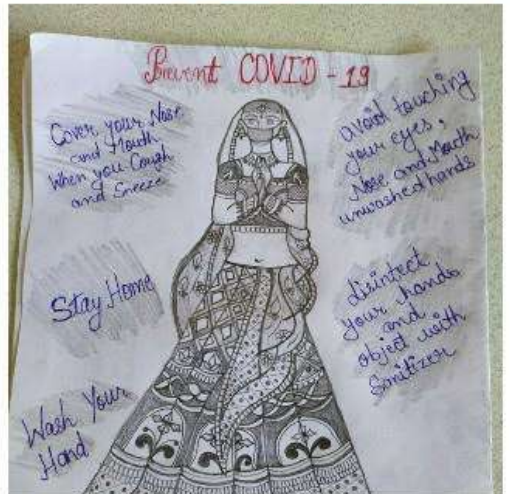 Prevent COVID - 19
Cover your Nose
and Mouth
When you Cough
and Sneeze
Stay Home
Wash Your
Hand
avoid touching
your eyes,
Nose and Mouth
unwashed hands
disinfect
your hands
and
object with
Sanitizer